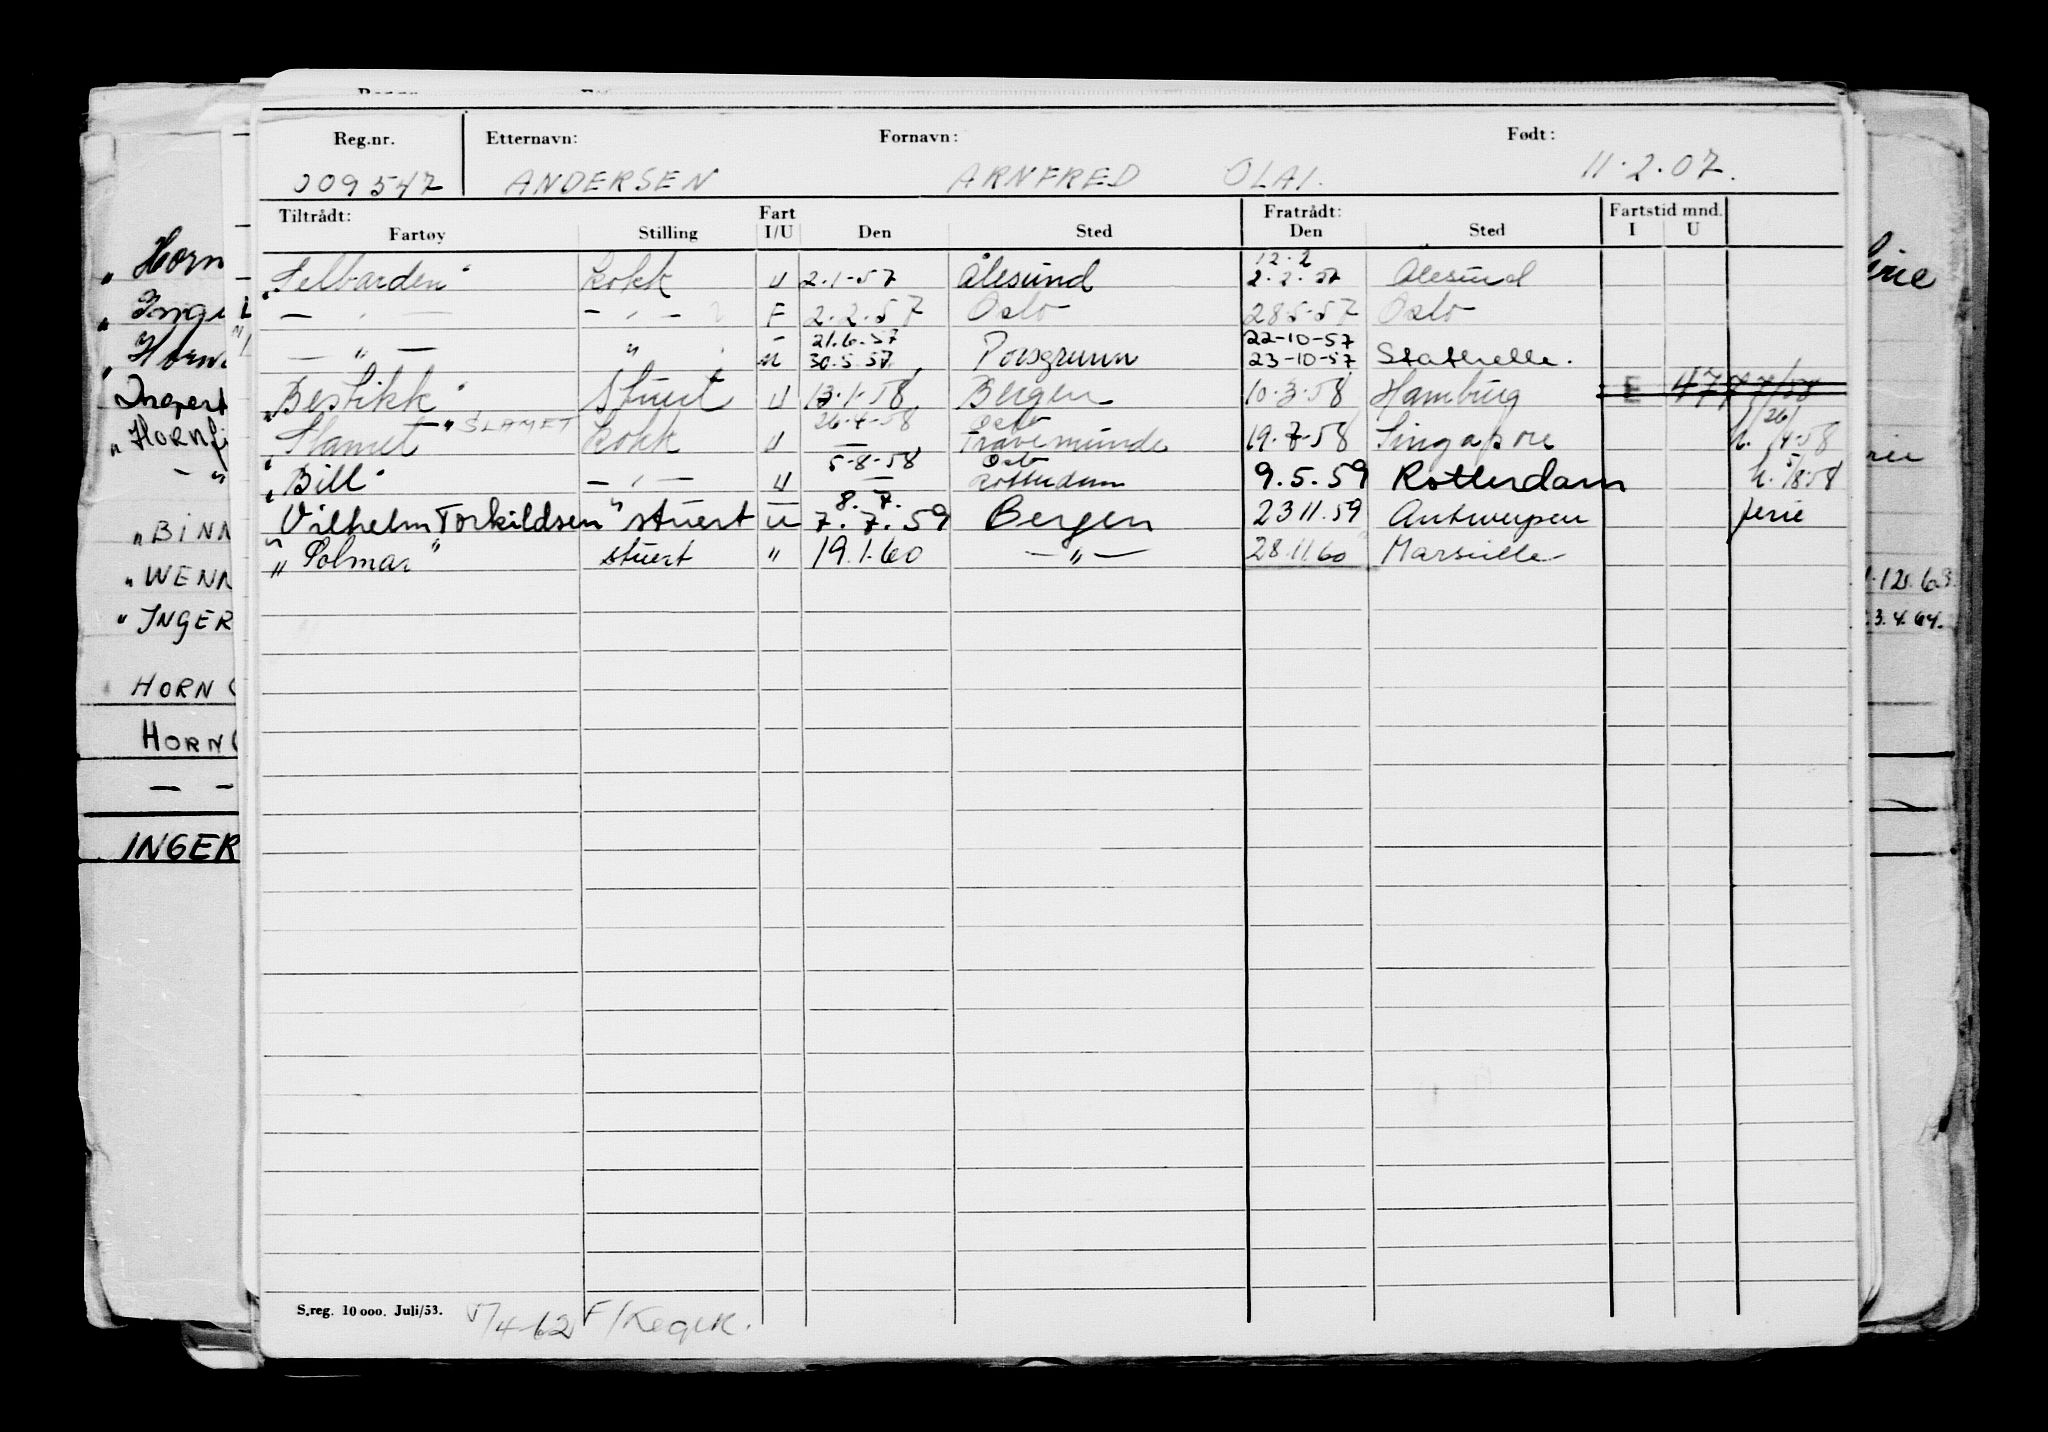 Reg.nr. Etternavn: Fornavn: Født:
009547 ANDERSEN ARNFRED OLAI. 11.2.07.
Tiltrådt: Fart Fratrådt: Fartstid mnd.
Fartøy Stilling I/U Den Sted Den Sted I U
12.2
"Selbarden" kokk U 2-1-57 Ålesund 2.2.57 Ålesund
— " — — " — F 2.2.57 Oslo 28.5.57 Oslo
21.6.57 22-10-57
— " — " U 30.5.57 Porsgrunn 23-10-57 Stathelle.
"Bestikk" Stuert U 13.1.58 Bergen 10.3.58 Hamburg E 477 7/58
"SLAMET 26.4.58 Oslo
"Slamet" kokk U — Travemünde 19.7.58 Singapore h. 26/4-58
5-8-58 Oslo
"Bill" — " — U — Rotterdam 9.5.59 Rotterdam h. 5/8.58
8.7.
"Vilhelm Torkildsen" stuert U 7.7.59 Bergen 23 11.59 Antwerpen ferie
"Polmar" stuert " 19.1.60 — " — 28.11.60 Marseille
S.reg. 10 000. Juli/53.
"Horn
"Horn
Ingert
"HORNfi
— "
"BINN
"WENN
"INGER
HORN
HORN
— -
INGER
rie
12.63
3.4.64.